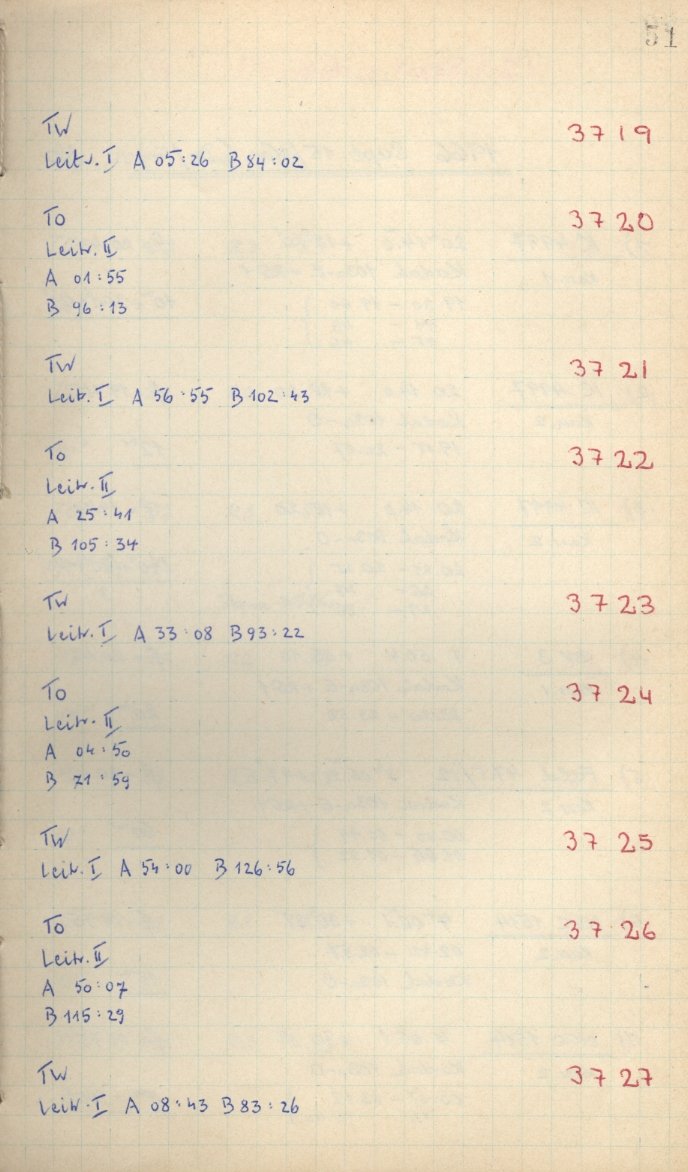 51
TW 3719
Leitr. I A 05:26 B 84:02
TO 3720
Leitr. II
A 01:55
B 96:13
TW 3721
Leitr. I A 56:55 B 102:43
TO 3722
Leitr. II
A 25:41
B 105:34
TW 3723
Leitr. I A 33:08 B 93:22
TO 3724
Leitr. II
A 04:50
B 71:59
TW 3725
Leitr. I A 54:00 B 126:56
TO 3726
Leitr. II
A 50:07
B 115:29
TW 3727
Leitr. I A 08:43 B 83:26